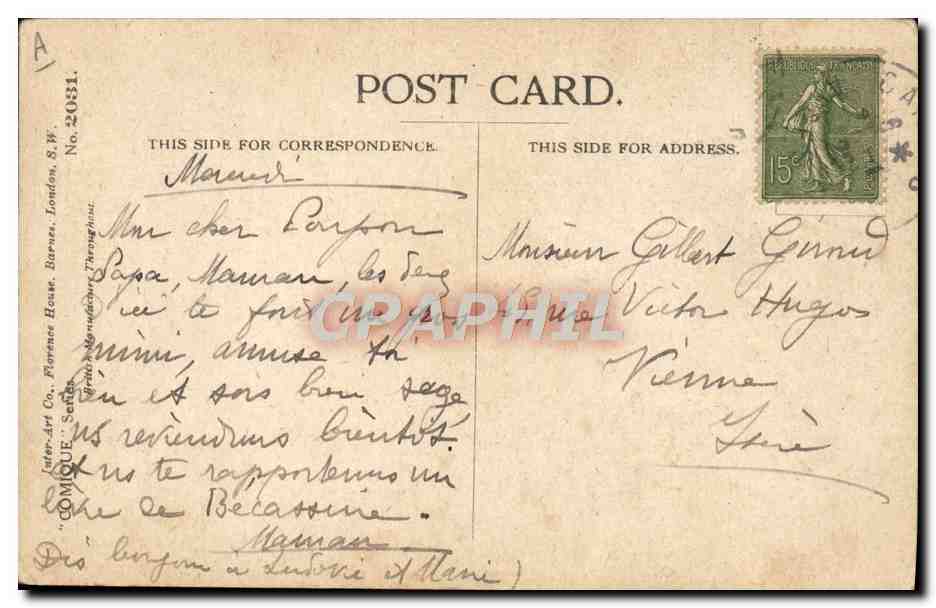 A
POST CARD.
THIS SIDE FOR CORRESPONDENCE.
THIS SIDE FOR ADDRESS.
No. 2031.
Inter-Art Co., Florence House, Barnes, London, S.W.
"COMIQUE" Series
British Manufacture Throughout.
REPUBLIQUE FRANÇAISE
15c
Mon cher
Papa, Maman, les deux
d'ici te font un gros
mimi, amuse toi
bien et sois bien sage
ns reviendrons bientôt.
Et ns te rapporterons un
livre de Bécassine.
Maman
Dis bonjour a Ludovic et Marie)
Monsieur Gilbert Giroud
rue Victor Hugo
Vienne
Isère
CPAPHIL